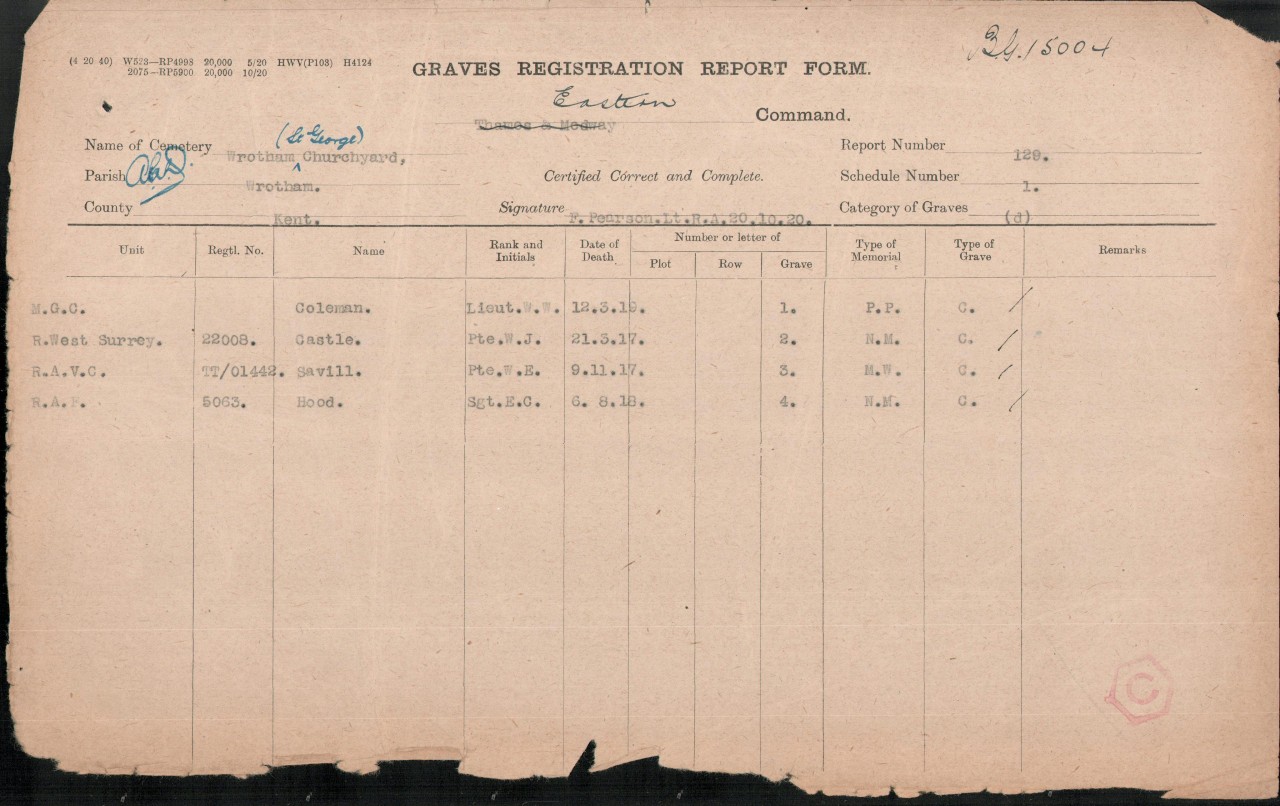 B.G. 15004
(4 20 40) W523—RP4998 20,000 5/20 HWV(P103) H4124
2075—RP5900 20,000 10/20
GRAVES REGISTRATION REPORT FORM.
Eastern
Thames & Medway Command.
(St George)
Name of Cemetery Wrotham Churchyard, Report Number 129.
Parish Wrotham. Certified Correct and Complete. Schedule Number 1.
County Kent. Signature F. Pearson.Lt.R.A.20.10.20. Category of Graves (d)
Unit Regtl. No. Name Rank and Initials Date of Death Number or letter of Plot Row Grave Type of Memorial Type of Grave Remarks
M.G.C. Coleman. Lieut.W.W. 12.3.19. 1. P.P. C. /
R.West Surrey. 22008. Castle. Pte.W.J. 21.3.17. 2. N.M. C. /
R.A.V.C. TT/01442. Savill. Pte.W.E. 9.11.17. 3. M.W. C. /
R.A.F. 5063. Hood. Sgt.E.C. 6. 8.18. 4. N.M. C. /
C